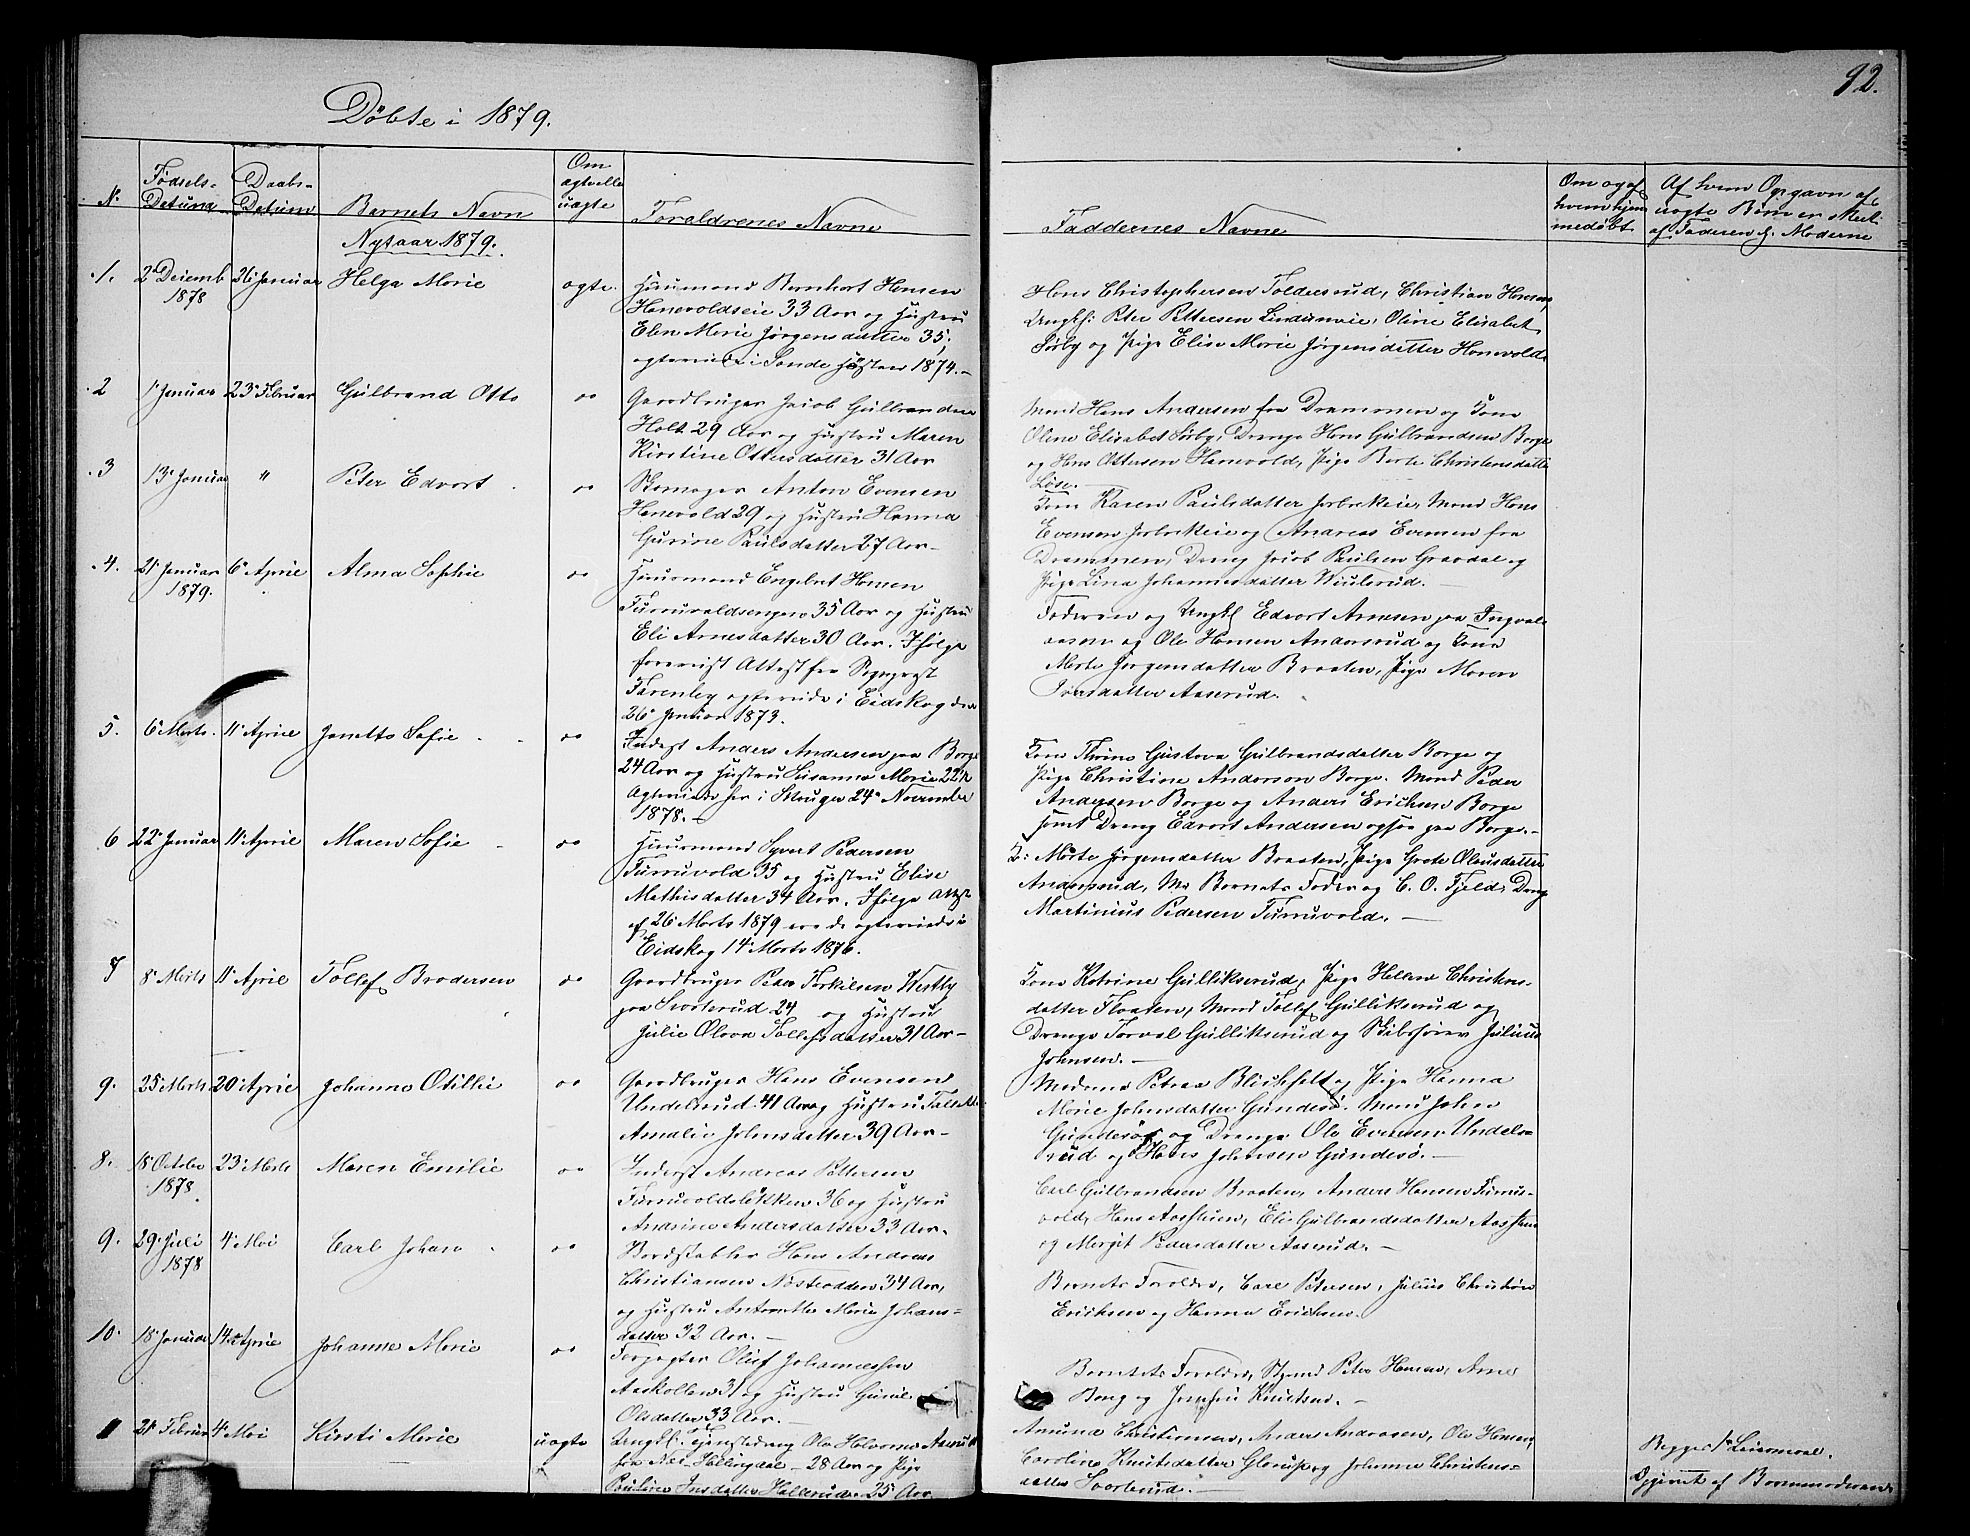 Döbte i 1879.
92.
N.
Fødsels-
Datum
Daabs-
Datum
Barnets Navn
Om
ægte eller
uægte
Forældrenes Navne
Faddernes Navne
Om og af
hvem hjem
medøbt
Af hvem Opgavn af
uægte Børn er skeet
af Faderen &. Moderne
Nytaar 1879.
1.
2 Decemb
1878
26 Januar
Helga Marie
ægte.
Huusmand Bernhart Hansen
Hanevoldseie 33 Aar og Hustru
Elen Marie Jörgensdatter 35,
ægteviede i Sande Høsten 1874.-
Hans Christophersen Toldersrud, Christian Hansen,
Ungk: Peter Pettersen Lindumeie, Oline Elisabet
Sørby og Pige Elise Marie Jörgensdatter Hanevold.
2
1 Januar
23 Februar
Gulbrand Otto
oo
Gaardbruger Jacob Gulbrandsen
Holt 29 Aar og Hustru Maren
Kirstine Ottersdatter 31 Aar
Mand Hans Andersen fra Drammen og Kone
Oline Elisabet Sørby, Drenge Hans Gulbrandsen Borge
og Hans Ottersen Hanevold, Pige Berte Christensdatter
Löse.-
3
13 Januar
"
Peter Edvart
oo
Skomager Anton Evensen
Hanevold 29 og Hustru Hanna
Gurine Paulsdatter 27 Aar-
Kone Karen Paulsdatter Jarbekeie, Mand Hans
Evensen Jarbekeie og Andreas Evensen fra
Drammen, Dreng Jacob Paulsen Gravdal og
Pige Lina Johannesdatter Wiulsrud.-
4.
21 Januar
1879.
6 Aprie
Alma Sophie
oo
Huusmand Engebret Hansen
Furruvoldsengen 35 Aar og Hustru
Eli Arnesdatter 30 Aar. Ifølge
forevist Attest fra Sognepræst
Farenby ægteviede i Eidskog den
26 Januar 1873.
Faderen og Ungkl Edvart Arnesen paa Ingvals
og Ole Hansen Andersrud og Kone
Marte Jørgensdatter Braaten, Pige Maren
Iversdatter Aaserud.
5.
6 Marts.
11 Aprie
Janette Sofie
oo
Inderst Anders Andersen paa Borge
24 Aar og Hustru Susanna Marie 22
Ægteviede her i Strugen 24 November
1878.-
Kone Thrine Gustava Gulbrandsdatter Borge og
Pige Christine Anderson Borge. Mand Peder
Andersen Borge og Anders Erichsen Borge
samt Dreng Edvart Andersen ogsaa paa Borge.-
6
22 Januar
11 Aprie
Maren Sofie
oo
Huusmand Syvert Pedersen
Furruvold 35 og Hustru Elise
Mathisdatter 34 Aar. Ifølge Attest
af 26 Marts 1879 ere de ægteviede i
Eidskog 14 Marts 1876.
K: Marte Jørgensdatter Braaten, Pige Grete Olausdatter
Andersrud, Ma Barnets Fader og C. O. Fjeld, Dreng
Martinius Pedersen Furruvold.-
7
8 Marts
11 Aprie
Tollef Brodersen
oo
Gaardbruger Peter Torkilsen Westby
paa Svarterud 24 og Hustru
Julie Olava Tollefsdatter 31 Aar-
Kone Katrine Gulliksrud, Pige Hellene Christens-
datter Flaaten, Mand Tollef Gulliksrud og
Drenge Torval Gulliksrud og Skibsfører Julius
Johnsen.-
9.
25 Marts
20 Aprie
Johanne Otillie
oo
Gaardbruger Hans Evensen
Undelsrud 41 Aar og Hustru Tallette
Amalie Johnsdatter 39 Aar-
Madame Petrea Blichfelt og Pige Hanna
Marie Johnsdatter Gundesø. Mand John
Gundesø og Drenge Ole Evensen Undels-
rud og Hans Johnsen Gundesø.-
8.
18 Octobe
1878
23 Marts
Maren Emilie
oo
Inderst Andreas Pettersen
Furruvoldsløkken 36 og Hustru
Andrine Andersdatter 33 Aar.
Carl Gulbrandsen Braaten, Anders Hansen Furru-
vold, Hans Aasstuen, Eli Gulbrandsdatter Aasstuen
og Mergit Pedersdatter Aaserud.-
9.
29 Juli
1878
4 Mai
Carl Johan
oo
Bordstabler Hans Andreas
Christiansen Næsteodden 34 Aar,
og Hustru Antonette Marie Johans-
datter 32 Aar.-
Barnets Forældre, Carl Petersen, Julius Christian
Ericksen og Hanna Erichsen.
10.
18 Januar
14 Aprie
Johanne Marie
oo
Forpagter Oluf Johannessen
Aaskollen 31 og Hustru Gunil
Olsdatter 33 Aar.-
Barnets Forældre, Peter Hansen, Arne
Bang og Josefine Knudsen.-
11
21 Februar
4 Mai
Kirsti Marie
uægte
Ungkl. Tjenstedreng Ole Halvorsen Aaserud
fra Næs Hallingdal - 28 Aar og Pige
Pauline Jensdatter Hallerud. 25 Aar
Amund Christiansen, Anders Andreasen, Ole Hansen,
Caroline Knutsdatter Glerup og Johanne Christens-
datter Svarterud.-
Begges 1ste Leiermaal.
Opgivet af Barnemoderen.